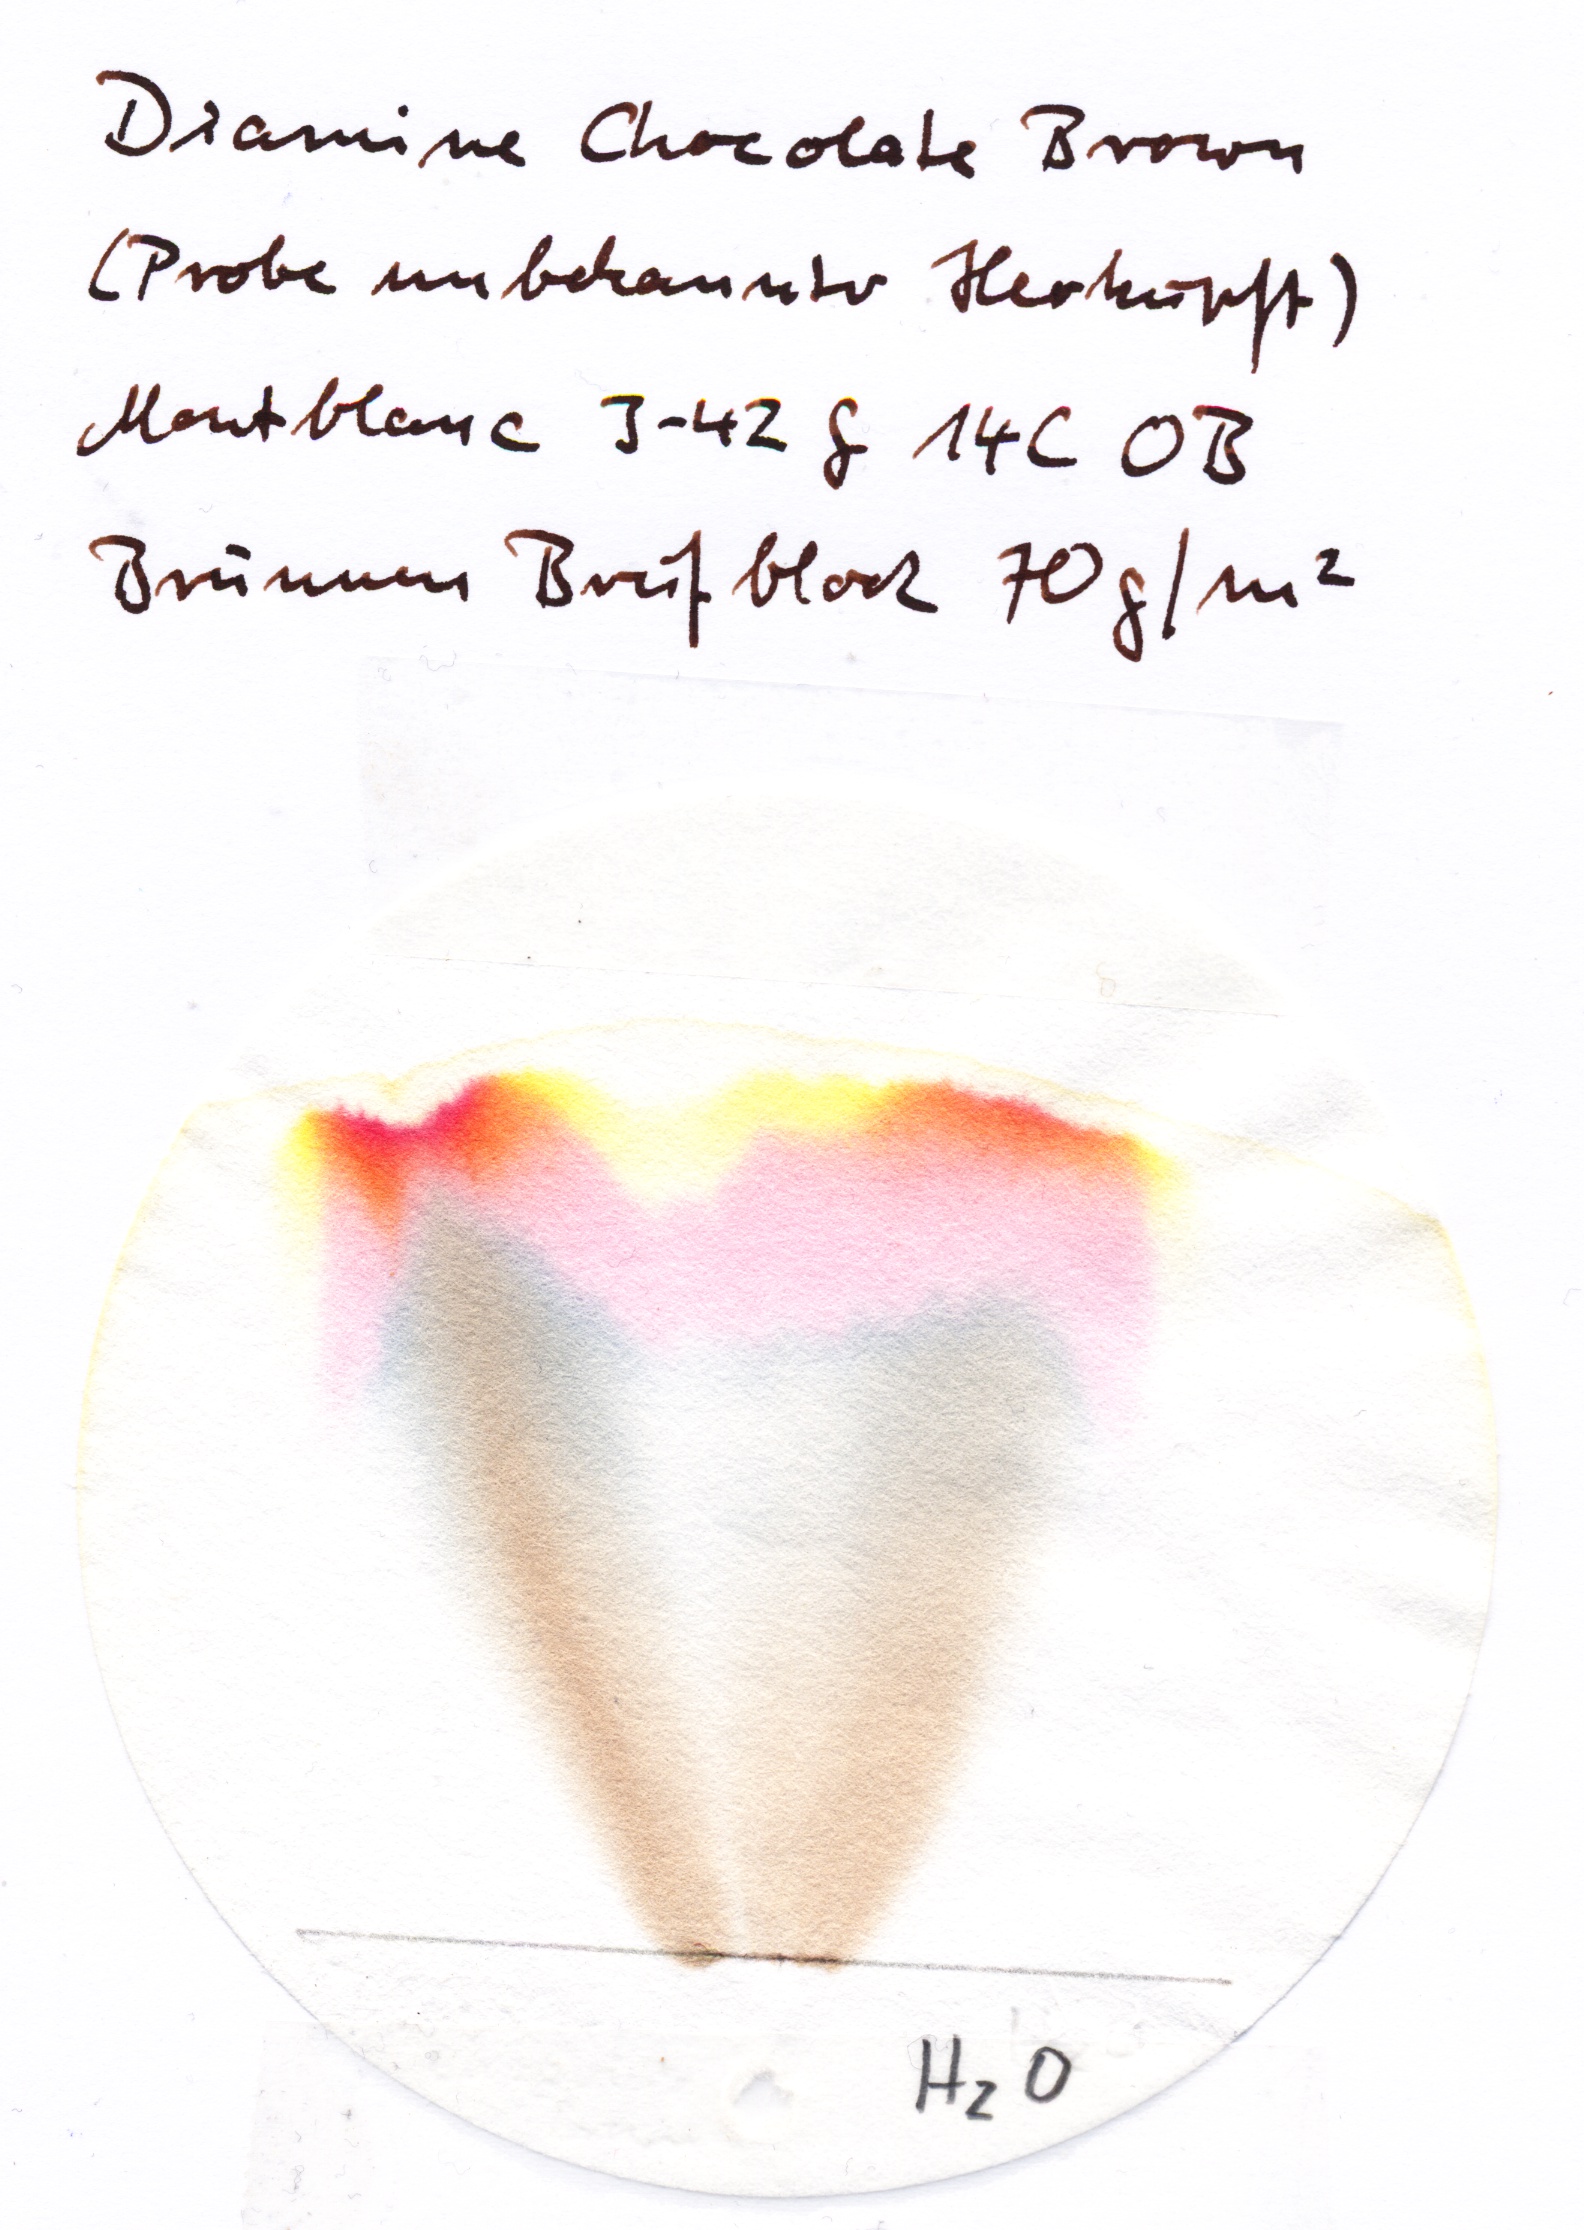 Diamine Chocolate Brown
(Probe unbekannter Herkunft)
Montblanc 3-42 g 14C OB
Brunnen Briefblock 70g/m²
H₂O